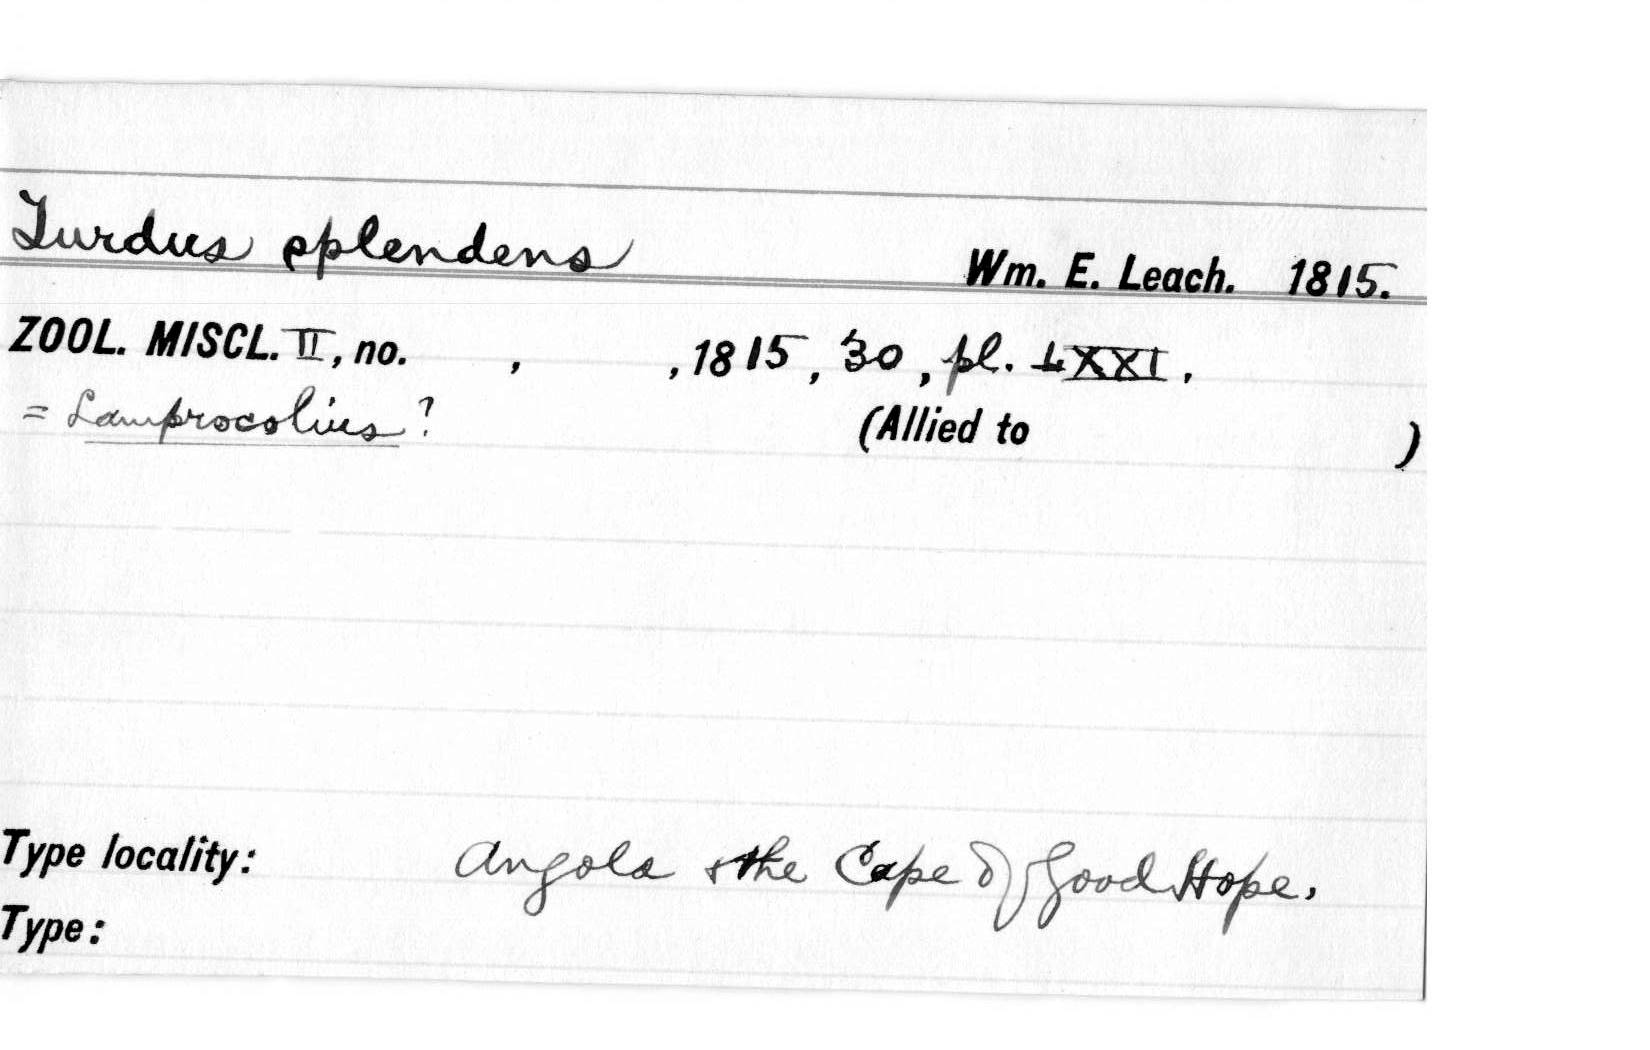 Turdus splendens
Wm. E. Leach. 1815.
ZOOL. MISCL. II, no. , , 1815, 30, pl. LXXI.
= Lamprocolius ?
(Allied to )
Type locality: Angola & the Cape of Good Hope.
Type: